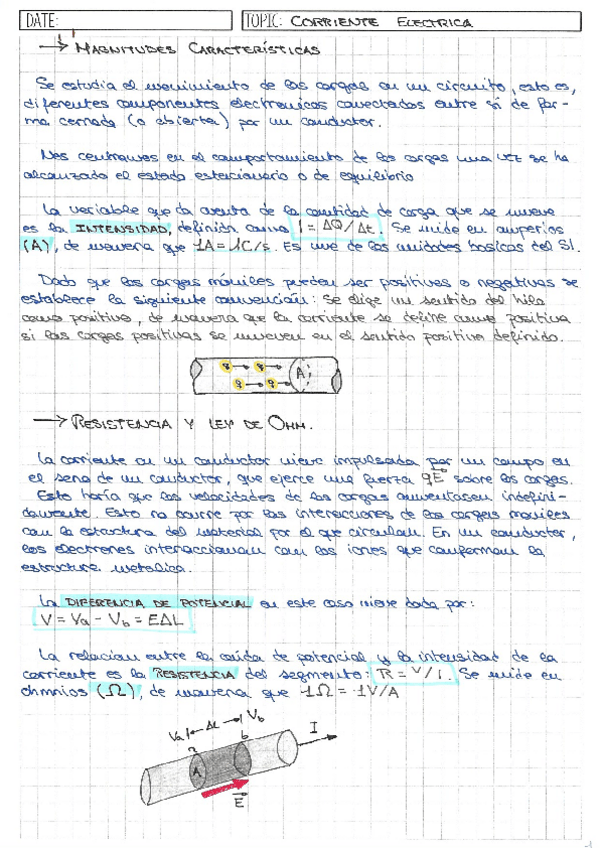 DATE:
TOPIC: CORRIENTE ELECTRICA
→ MAGNITUDES CARACTERÍSTICAS
Se estudia el movimiento de las cargas en un circuito, esto es,
diferentes componentes electronicos conectados entre sí de for-
ma cerrada (o abierta) por un conductor.
Nos centramos en el comportamiento de las cargas una vez se ha
alcanzado el estado estacionario o de equilibrio
La variable que da cuenta de la cantidad de carga que se mueve
es la INTENSIDAD, definida como I = ΔQ/Δt. Se mide en amperios
(A), de manera que 1A = 1C/s. Es una de las unidades basicas del SI.
Dado que las cargas móviles pueden ser positivas o negativas se
establece la siguiente convencion: Se elige un sentido del hilo
como positivo, de manera que la corriente se define como positiva
si las cargas positivas se mueven en el sentido positivo definido.
q q
A
q q
→ RESISTENCIA Y LEY DE OHM.
La corriente en un conductor viene impulsada por un campo en
el seno de un conductor, que ejerce una fuerza qE sobre las cargas.
Esto haría que las velocidades de las cargas aumentasen indefini-
damente. Esto no ocurre por las interacciones de las cargas móviles
con la estructura del material por el que circulan. En un conductor,
los electrones interaccionan con los iones que conforman la
estructura metalica.
La DIFERENCIA DE POTENCIAL en este caso viene dada por:
V = Va - Vb = EΔL
La relacion entre la caida de potencial y la intensidad de la
corriente es la RESISTENCIA del segmento: R = V/I. Se mide en
ohmnios (Ω), de manera que 1Ω = 1V/A
Va ΔL Vb
a b I
A
E